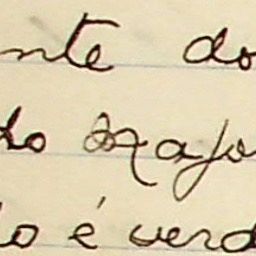 nte do
do Majo
do é verd